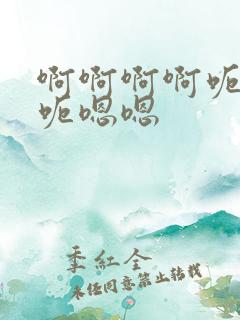 啊啊啊啊呃
呃嗯嗯
季红全
未经同意禁止转载